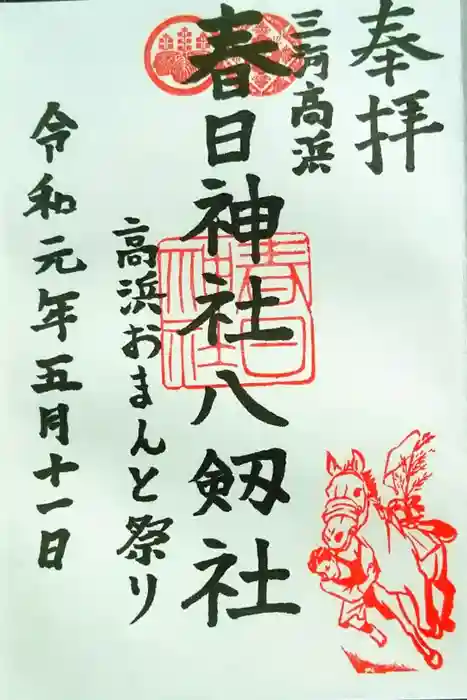 奉拝
三河高浜
春日神社八剱社
高浜おまんと祭り
令和元年五月十一日
春日
神社